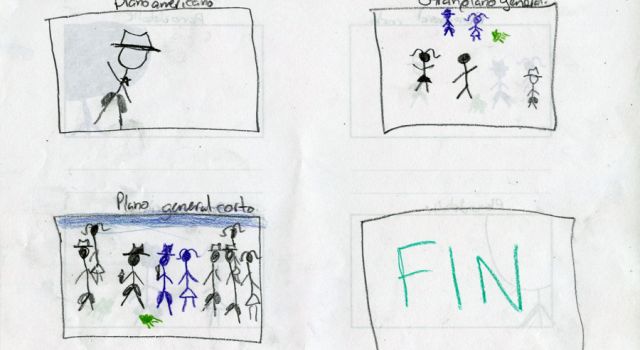 Plano americano
Gran plano general
Plano general corto
FIN